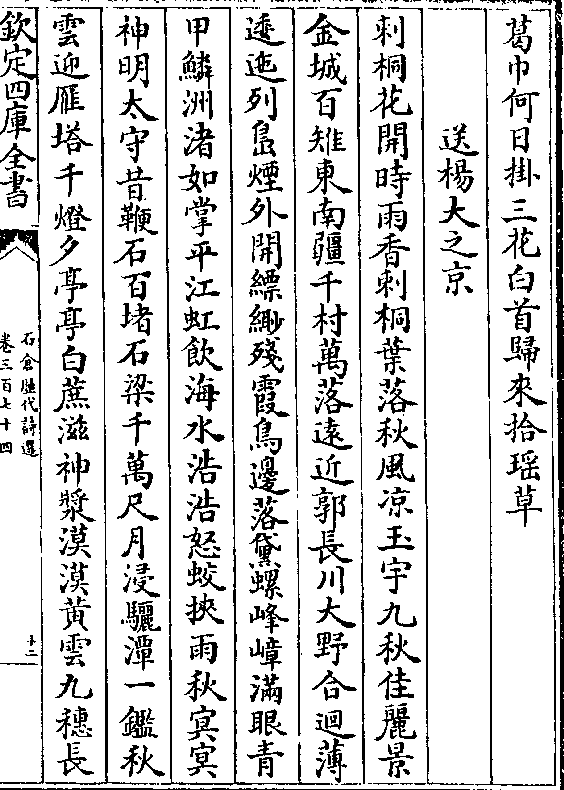 葛巾何日掛三花白首歸來拾瑶草
送楊大之京
刺桐花開時雨香刺桐葉落秋風凉玉宇九秋佳麗景
金城百雉東南疆千村萬落遠近郭長川大野合迴薄
逶迤列島煙外開縹緲殘霞鳥邊落黛螺峰嶂滿眼青
甲鱗洲渚如掌平江虹飲海水浩浩怒蛟挾雨秋冥冥
神明太守昔鞭石百堵石梁千萬尺月浸驪潭一鑑秋
雲迎雁塔千燈夕亭亭白蔗滋神漿漠漠黄雲九穗長
欽定四庫全書
石倉歴代詩選
卷三百七十四
十二